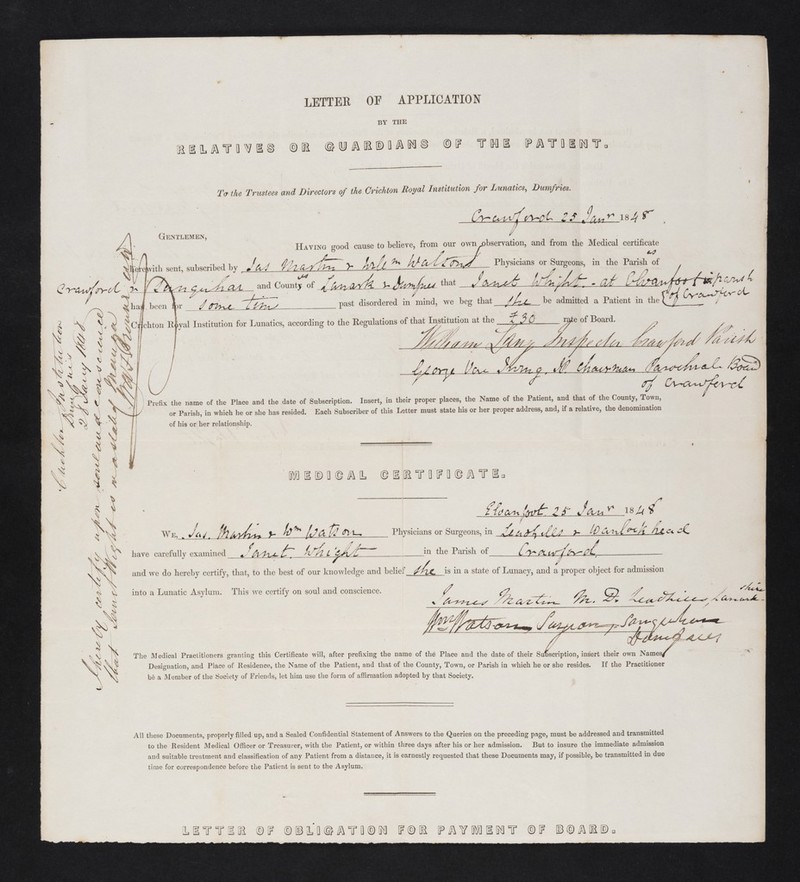 LETTER OF APPLICATION
BY THE
RELATIVES OR GUARDIANS OF THE PATIENT.
To the Trustees and Directors of the Crichton Royal Institution for Lunatics, Dumfries.
Crawford 25 Janr 1848.
GENTLEMEN,
HAVING good cause to believe, from our own observation, and from the Medical certificate
herewith sent, subscribed by Jas Martin & Willm Watson Physicians or Surgeons, in the Parishes of
Crawford & Sanquhar and Counties of Lanark & Dumfries that Janet Whight - at Elvanfoot parish
of Crawford
has been for some time past disordered in mind, we beg that she be admitted a Patient in the
Crichton Royal Institution for Lunatics, according to the Regulations of that Institution at the £30 rate of Board.
William Lang Inspector Crawford Parish
George Vere Irving. Chairman Parochial Board
of Crawford
Prefix the name of the Place and the date of Subscription. Insert, in their proper places, the Name of the Patient, and that of the County, Town,
or Parish, in which he or she has resided. Each Subscriber of this Letter must state his or her proper address, and, if a relative, the denomination
of his or her relationship.
MEDICAL CERTIFICATE.
Elvanfoot 25 Janr 1848
WE, Jas. Martin & Wm Watson Physicians or Surgeons, in Leadhills & Wanlockhead
have carefully examined Janet Whight in the Parish of Crawford
and we do hereby certify, that, to the best of our knowledge and belief she is in a state of Lunacy, and a proper object for admission
into a Lunatic Asylum. This we certify on soul and conscience.
James Martin M. D. Leadhills, Lanarkshire
Wm Watson Surgeon, Sanquhar
Dumfries
The Medical Practitioners granting this Certificate will, after prefixing the name of the Place and the date of their Subscription, insert their own Names,
Designation, and Place of Residency, the Name of the Patient, and that of the County, Town, or Parish in which he or she resides. If the Practitioner
be a Member of the Society of Friends, let him use the form of affirmation adopted by that Society.
All these Documents, properly filled up, and a Sealed Confidential Statement of Answers to the Queries on the preceding page, must be addressed and transmitted
to the Resident Medical Officer or Treasurer, with the Patient, or within three days after his or her admission. But to insure the immediate admission
and suitable treatment and classification of any Patient from a distance, it is earnestly requested that these Documents may, if possible, be transmitted in due
time for correspondence before the Patient is sent to the Asylum.
LETTER OF OBLIGATION FOR PAYMENT OF BOARD.
Crichton Institution
Dumfries
28 Jany 1848
I hereby certify upon soul and conscience
that Janet Whight is in a state of Mania